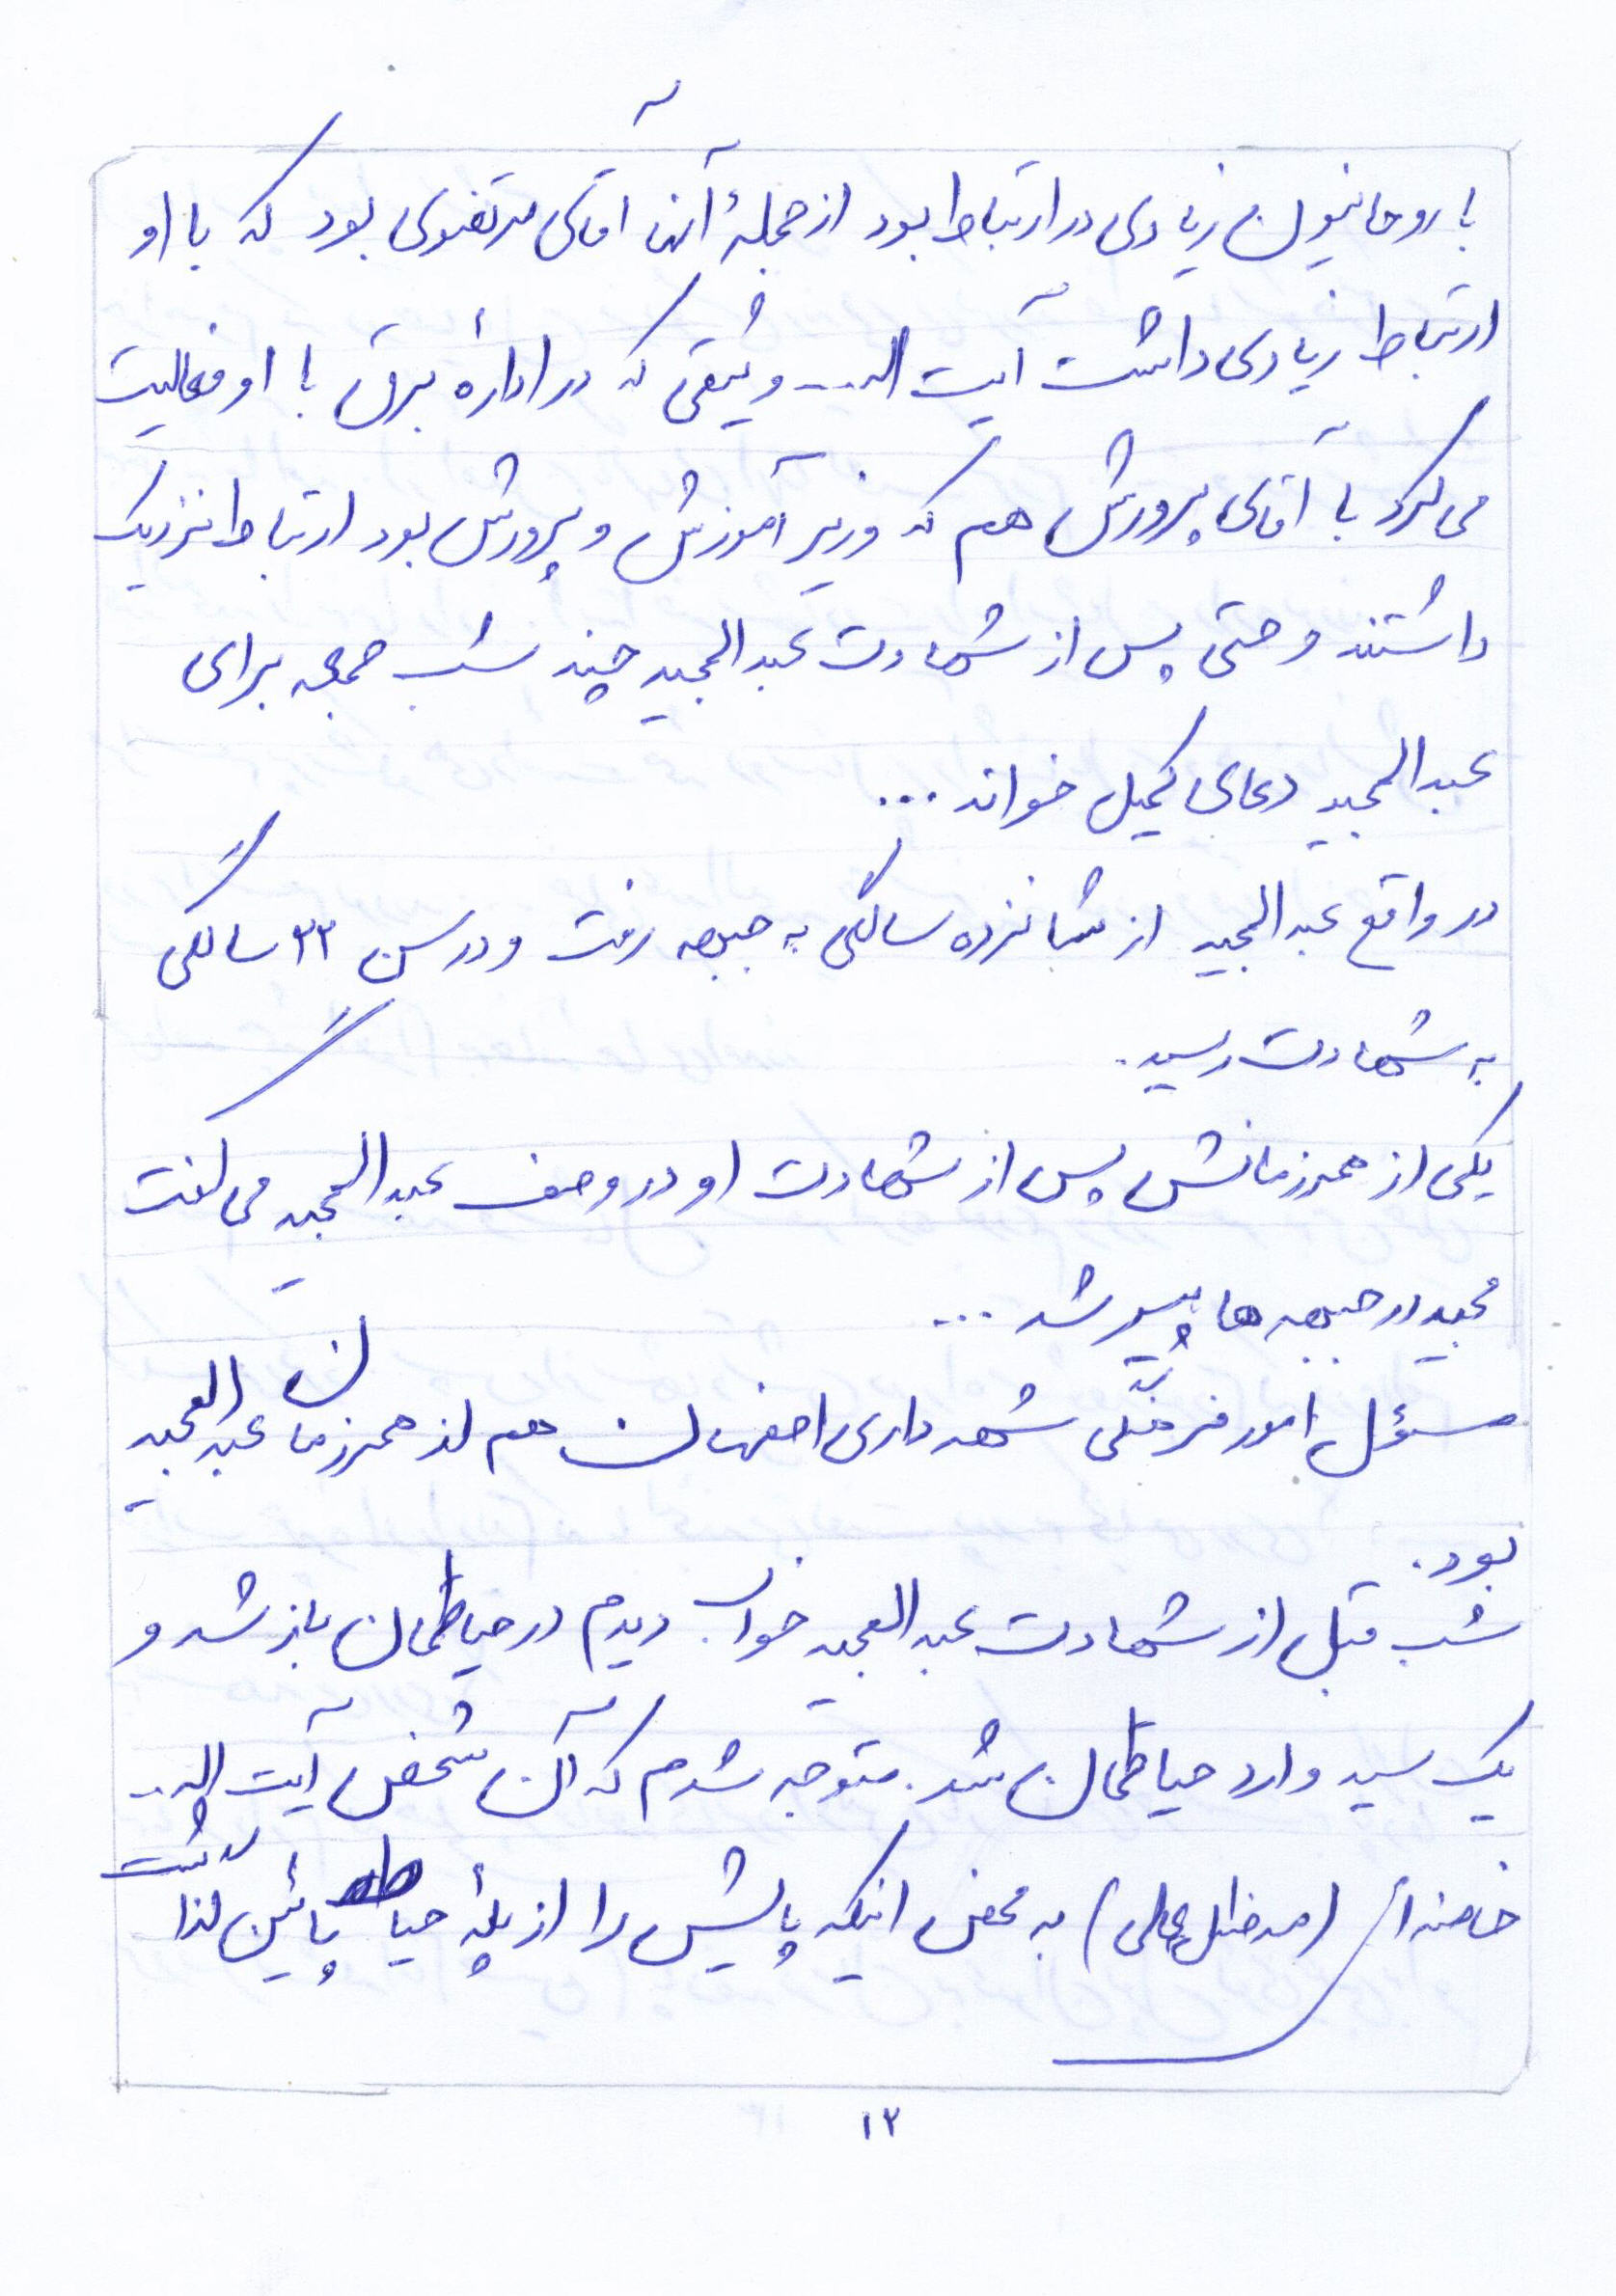 با روحانیون زیادی در ارتباط بود از جملۀ آنها آقای مرتضوی بود که با او
ارتباط زیادی داشت آیت الله... وثیقی که در ادارۀ برق با او فعالیت
می‌کرد با آقای پرورش هم که وزیر آموزش و پرورش بود ارتباط نزدیک
داشتند و حتی پس از شهادت عبدالمجید چند شب جمعه برای
عبدالمجید دعای کمیل خواند ...
در واقع عبدالمجید از شانزده سالگی به جبهه رفت و در سن ۲۳ سالگی
به شهادت رسید.
یکی از همرزمانش پس از شهادت او در وصف عبدالمجید می‌گفت
مجید در جبهه ها پیر شد ...
مسئول امور فرهنگی شهرداری اصفهان هم از همرزمان عبدالمجید
بود.
شب قبل از شهادت عبدالمجید خواب دیدم در حیاطمان باز شد و
یک سید وارد حیاطمان شد. متوجه شدم که آن شخص آیت الله..
خامنه‌ای (مدظله عالی) به محض اینکه پایش را از پلۀ حیاط پائین گذاشت
۱۲